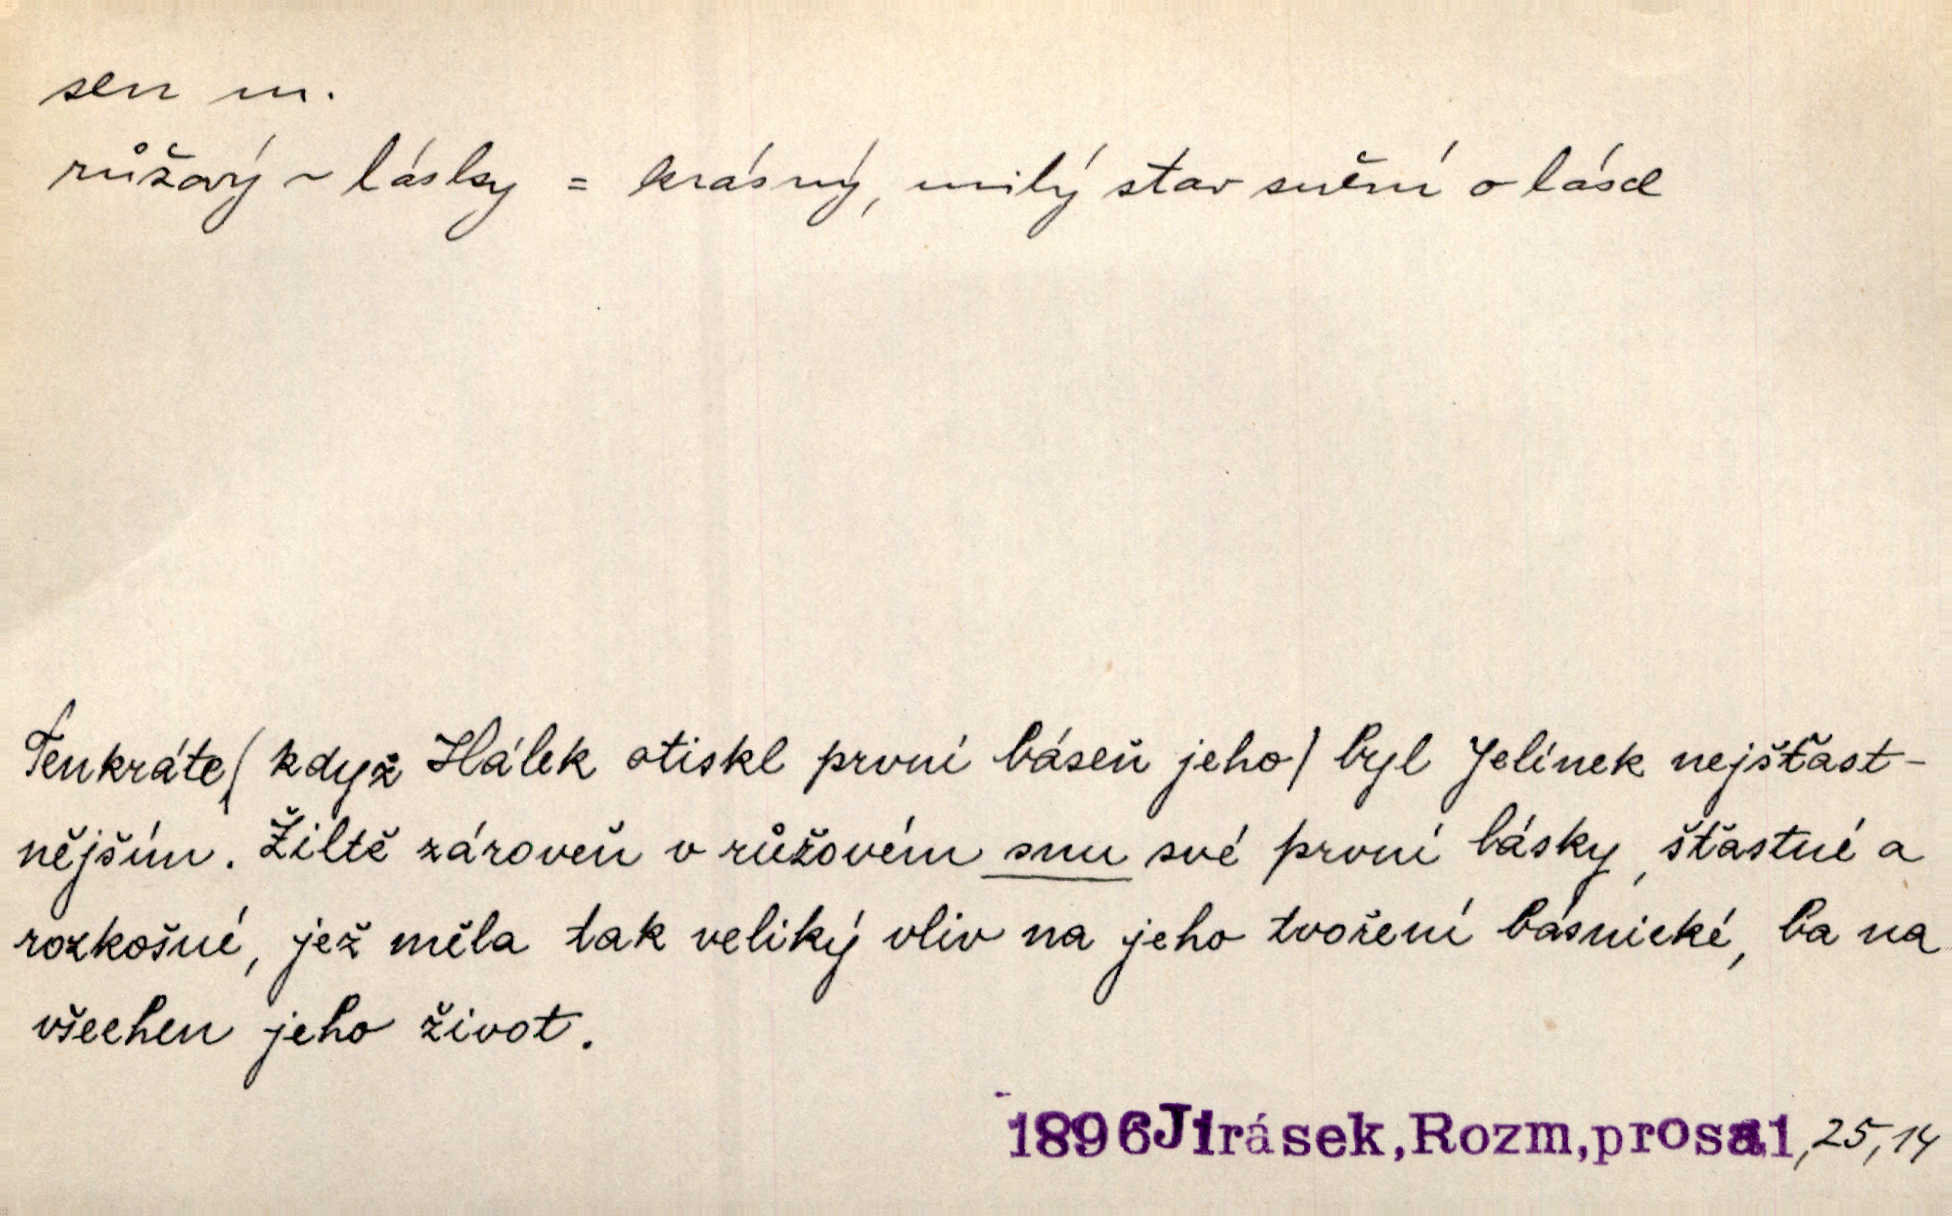 sen m.
růžový ~ lásky = krásný, milý stav snění o lásce
Tenkráte ( když Hálek otiskl první báseň jeho ) byl Jelínek nejšťast-
nějším. Žiltě zároveň v růžovém snu své první lásky, šťastné a
rozkošné, jež měla tak veliký vliv na jeho tvoření básnické, ba na
všechen jeho život.
1896 Jirásek, Rozm, prosa 1, 25, 14